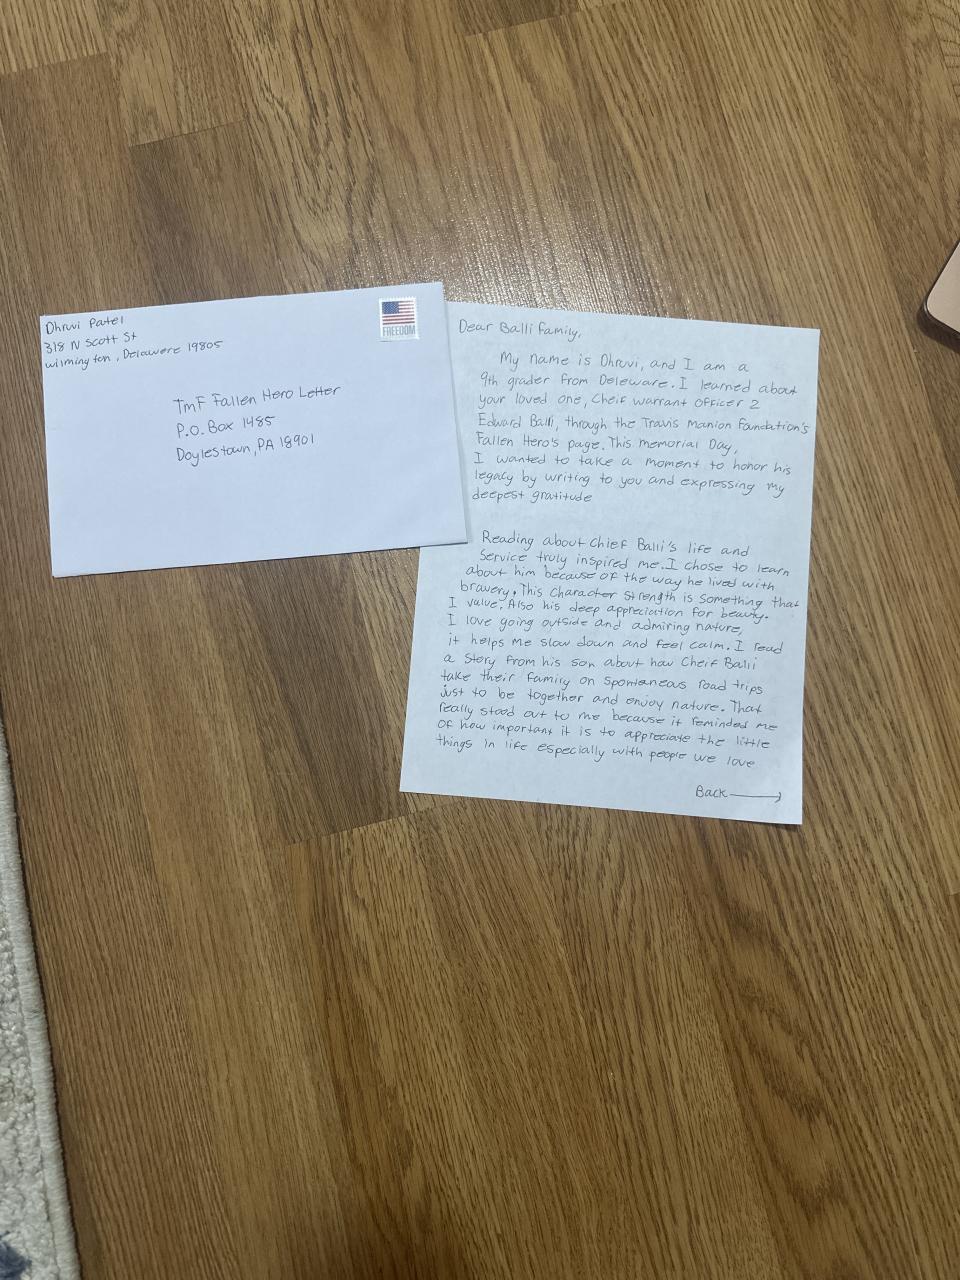 Dhruvi Patel
318 N Scott St
Wilmington, Delaware 19805
FREEDOM
TMF Fallen Hero Letter
P.O. Box 1485
Doylestown, PA 18901
Dear Balli Family,
My name is Dhruvi, and I am a
9th grader from Deleware. I learned about
your loved one, Cheif Warrant Officer 2
Edward Balli, through the Travis Manion Foundation's
Fallen Hero's page. This memorial Day,
I wanted to take a moment to honor his
legacy by writing to you and expressing my
deepest gratitude
Reading about Chief Balli's life and
service truly inspired me. I chose to learn
about him because of the way he lived with
bravery. This character strength is something that
I value. Also his deep appreciation for beauty.
I love going outside and admiring nature,
it helps me slow down and feel calm. I read
a story from his son about how Cheif Balli
take their family on spontaneous road trips
just to be together and enjoy nature. That
really stood out to me because it reminded me
of how important it is to appreciate the little
things in life especially with people we love
Back